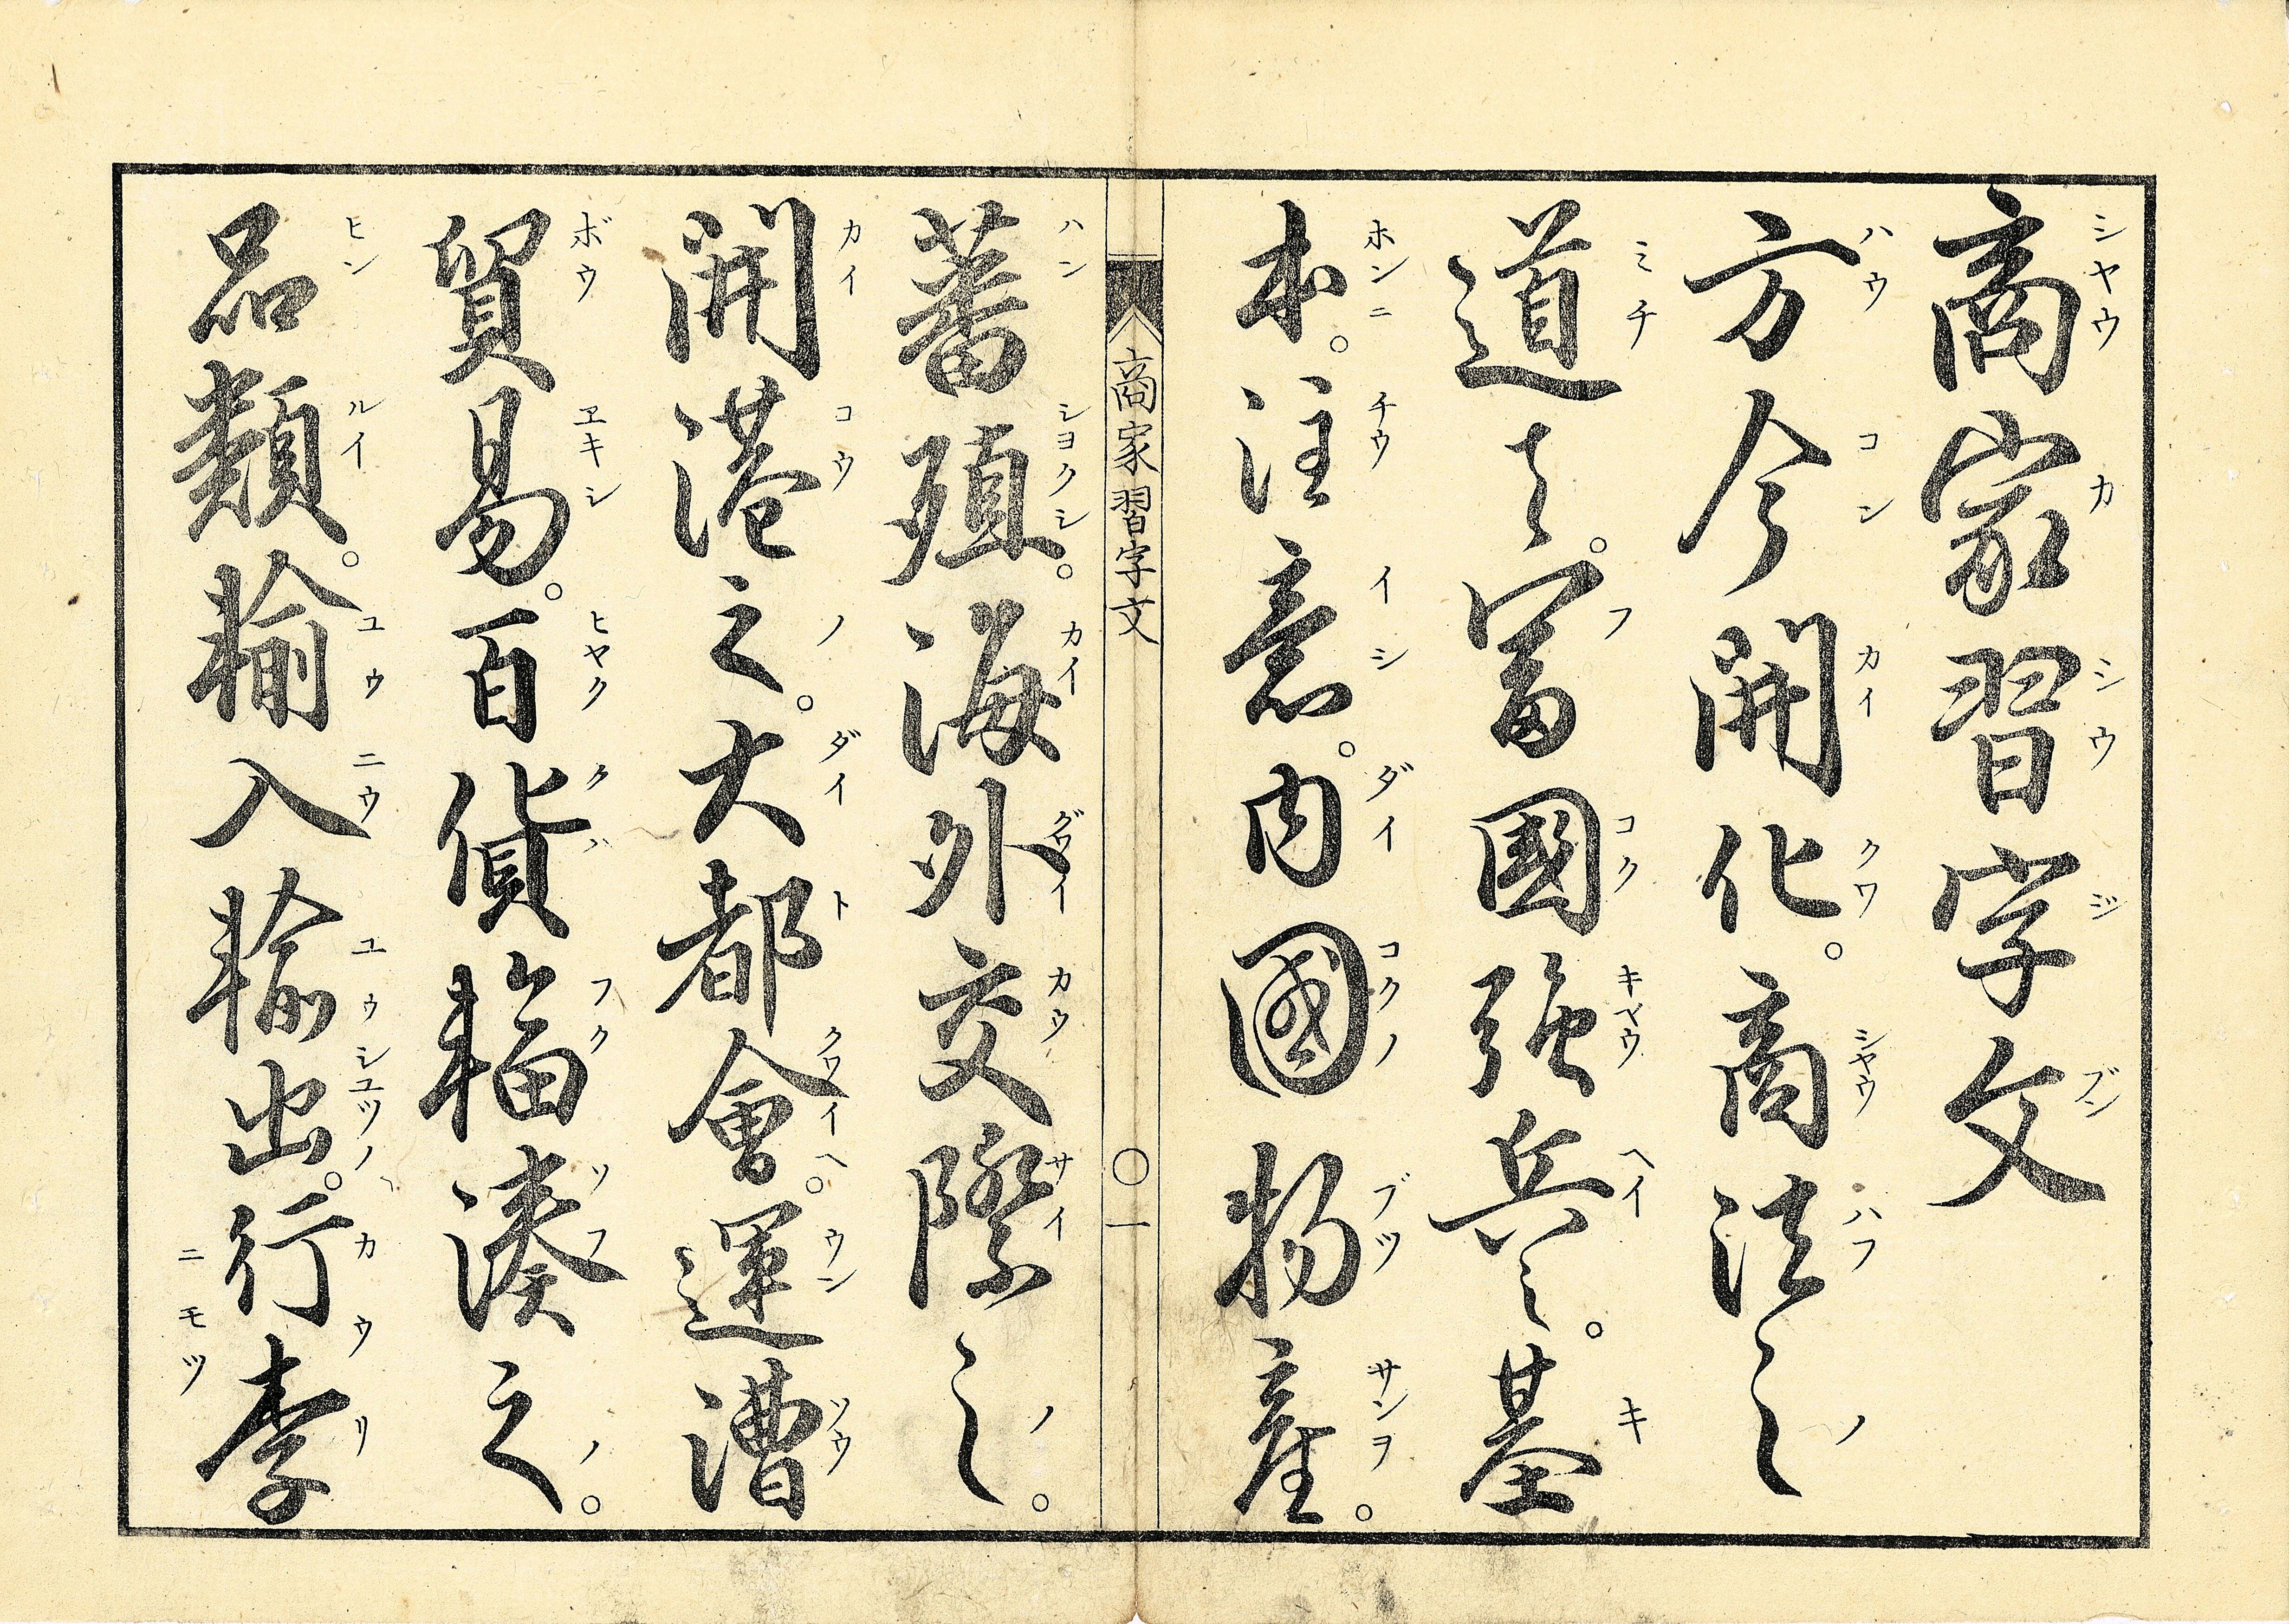 商家習字文
シヤウカシウジブン
方今開化。商法之
ハウコンカイクワシヤウハフノ
道は。富國強兵之。基
ミチフコクキヤウヘイキ
本。注意。内國物産。
ホンニチウイシダイコクノブツサンヲ
商家習字文 〇一
蕃殖。海外交際之。
ハンシヨクシカイグワイカウサイノ
開港之。大都會。運漕
カイコウノダイトクワイヘウンソウ
貿易。百貨輻湊之。
ボウヱキシヒヤククハフクソフノ
品類。輸入輸出。行李
ヒンルイユウニウユウシユツノカウリ
ニモツ